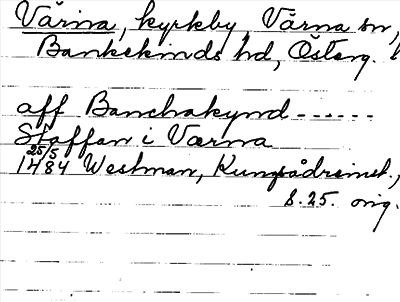 Vårna, kyrkby, Vårna sn,
Bankekinds hd, Österg. l
aff Banchakynd ------
Staffan i Værna
25/5
1484 Westman, Kungsådreinst.,
s. 25. orig.